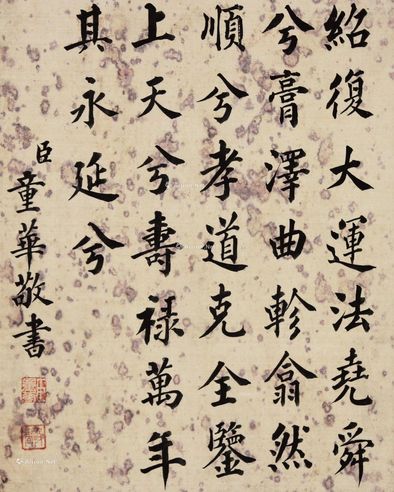 紹復大運法堯舜
兮膏澤曲軫翕然
順兮孝道克全鑒
上天兮壽祿萬年
其永延兮
臣童華敬書